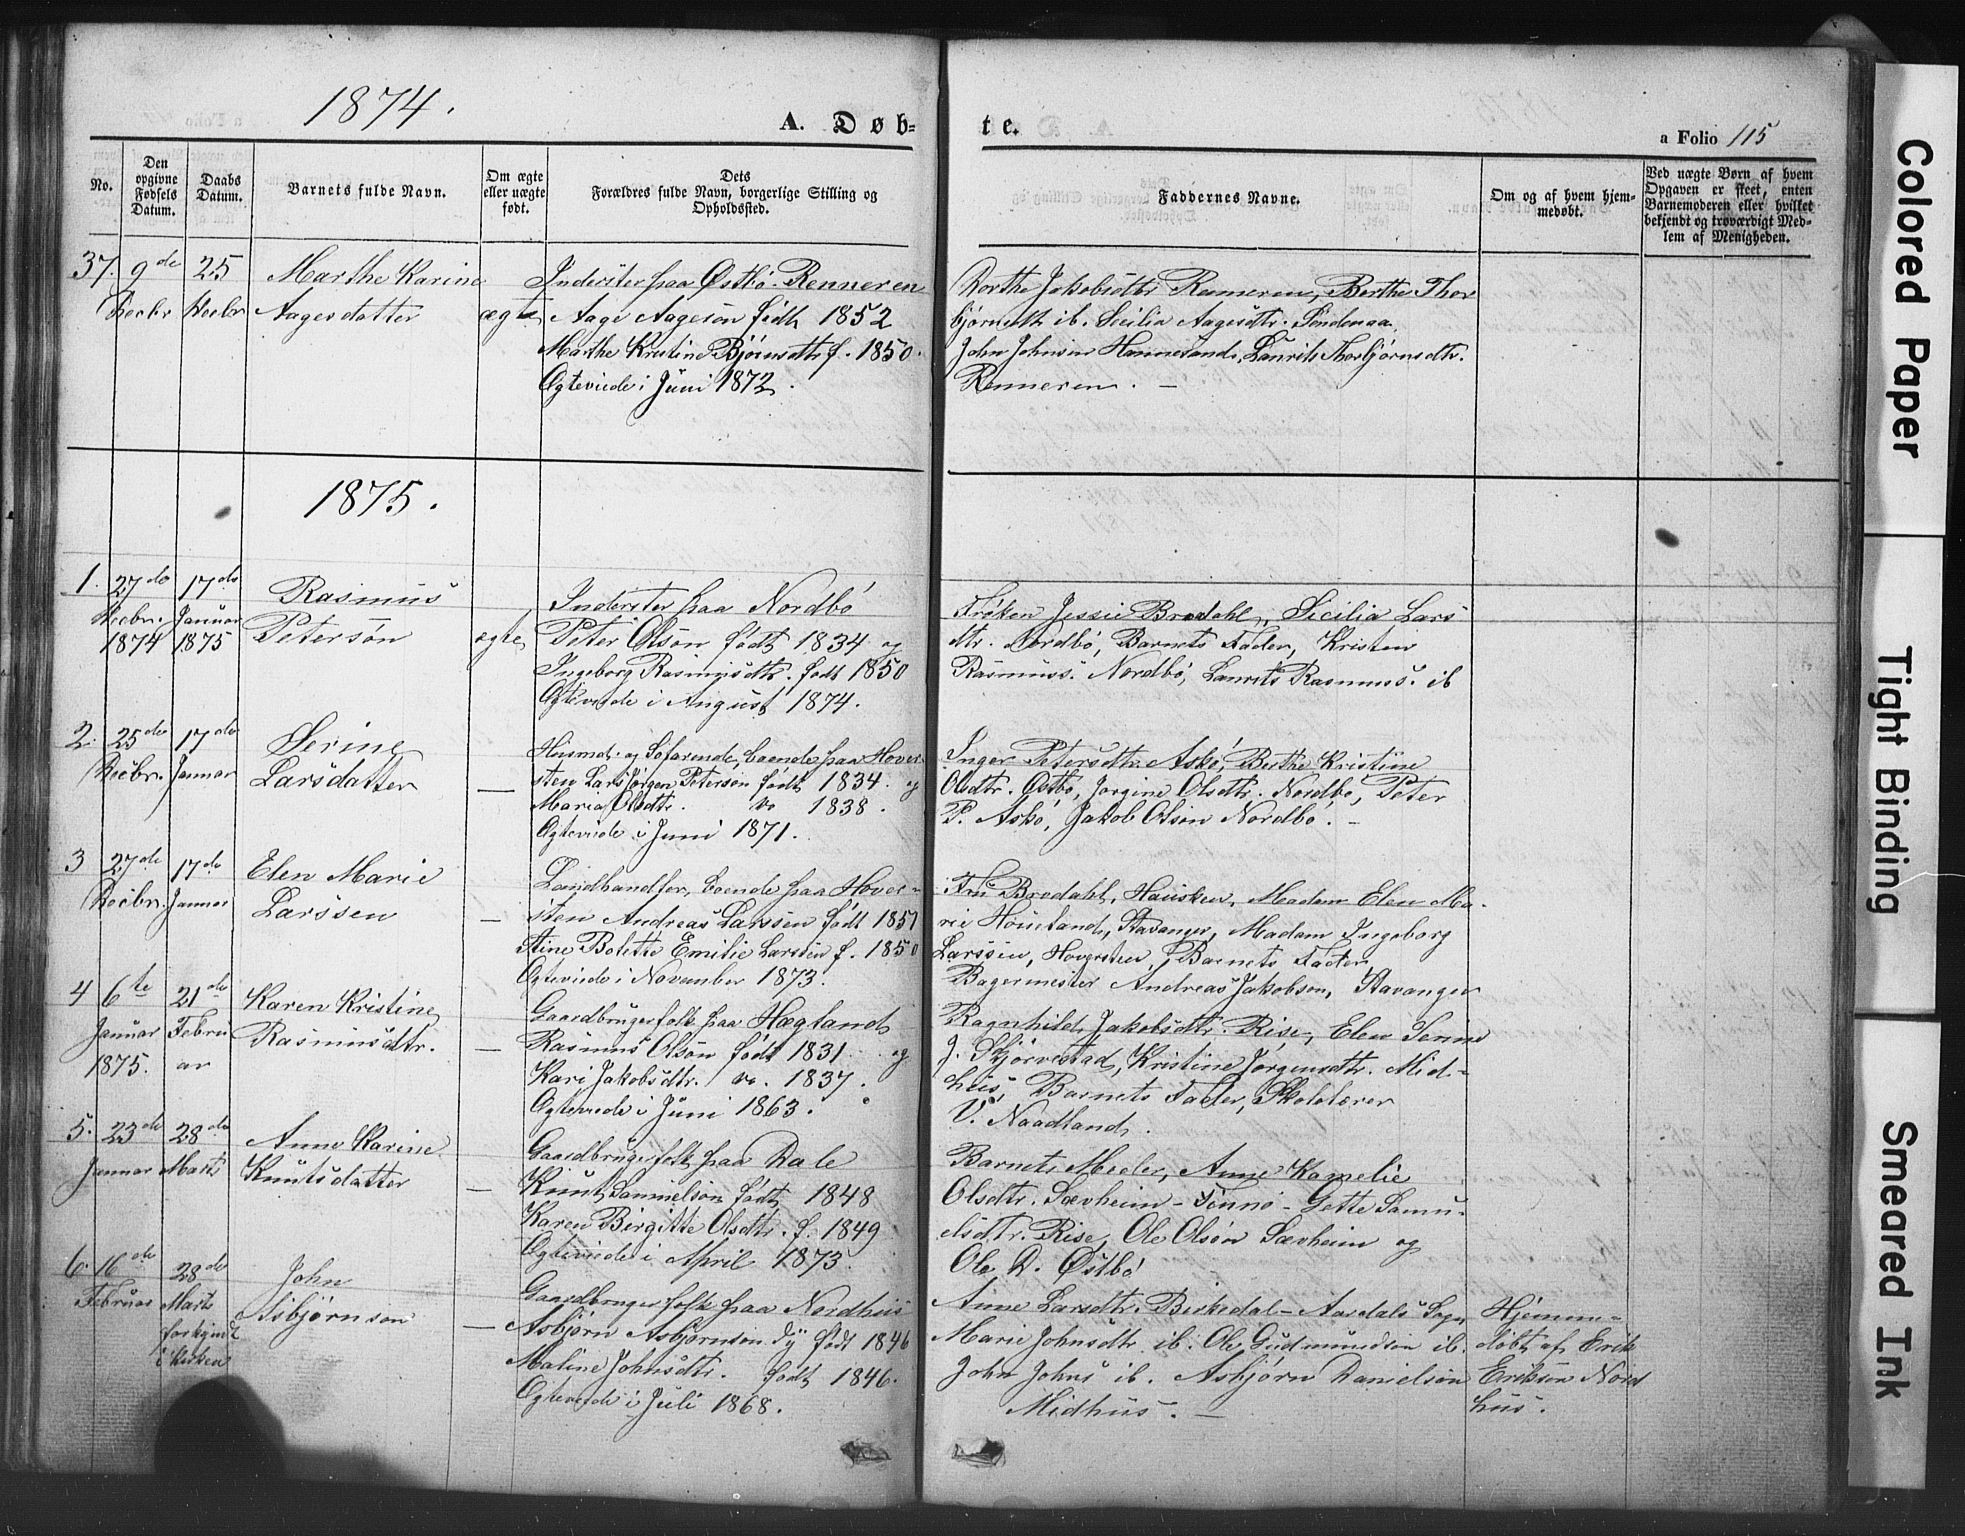 1874.
A. Døb=
te.
a Folio 115
No.
Den opgivne Fødsels Datum.
Daabs Datum.
Barnets fulde Navn.
Om ægte eller uægte født.
Dets
Forældres fulde Navn, borgerlige Stilling og
Opholdssted.
Faddernes Navne.
Om og af hvem hjem-
medøbt.
Ved uægte Børn af hvem
Opgaven er skeet, enten
Barnemoderen eller hvilket
bekjendt og troværdigt Med-
lem af Menigheden.
37. 9de Decbr 25 Decbr
Marthe Karine
Aagesdatter
ægte
Inderster paa Østbø Renneren
Aage Aageson født 1852
Marthe Kristine Bjørnsdtr f. 1850.
Ægteviede i Juni 1872.
Dorthe Jakobsdtr Renneren, Berthe Thor
bjørnsdtr ib. Sicilia Aagesdtr. Søndenaa.
John Johnsen Hannesand, Laurits Thorbjørnsdtr.
Renneren. —
1875.
1. 27de Decbr. 1874
17de Januar 1875
Rasmus
Petersøn
ægte
Inderster paa Nordbø
Peter Olsøn født 1834 og
Ingeborg Rasmusdtr. født 1850
Ægteviede i August 1874.
Frøken Jessie Brodahl, Sicilia Lars
dtr. Nordbø, Barnets Fader, Kristen
Rasmuss. Nordbø, Laurits Rasmuss. ib
2. 25de Decbr. 17de Januar
Serine
Larsdatter
—
Husmd. og Søfarende, boende paa Hover
sten Lars Jørgen Peterson født 1834. og
Maria Olsdtr. do 1838.
Ægteviede i Juni 1871.
Inger Petersdtr. Askø, Berthe Kristine
Olsdtr. Østbø, Jorgine Olsdtr. Nordbø, Peter
P. Askø, Jakob Olsøn Nordbø. —
3 27de Decbr. 17de Januar
Elen Marie
Larssen
—
Landhandler, boende paa Hover-
sten Andreas Larssen født 1851
Stine Bolette Emilie Larssen f. 1850
Ægteviede i November 1873.
Fru Brodahl, Hausken, Madam Elen Ma-
rie Houeland, Stavanger, Madam Ingeborg
Larssen, Hoversten, Barnets Fader,
Bagermester Andreas Jakobsen, Stavanger
4 6te Januar 1875.
21de Februar
Karen Kristine
Rasmusdtr.
—
Gaardbrugerfolk paa Hægland
Rasmus Olsøn født 1831 og
Kari Jakobsdtr. do. 1837.
Ægteviede i Juni 1863.
Ragnhild Jakobsdtr. Rise, Elen Serine
J. Skjørvestad, Kristine Jørgensdtr. Mid-
hus, Barnets Fader, Skolelærer
V. Naadland.
5. 23de Januar 28de Marts
Anne Karine
Knutsdatter
—
Gaardbrugerfolk paa Dale
Knut Samuelson født 1848
Karen Birgitte Olsdtr. f. 1849
Ægteviede i April 1873.
Barnets Moder, Anne Kornelie
Olsdtr. Sævheim - Finnø - Gette Samu-
elsdtr. Rise, Ole Olsøn Sævheim og
Ole D. Østbø
6. 16de Februar
28de Marts
forkyndt
i Kirken
John
Asbjørnson
—
Gaardbrugerfolk paa Nordhus
Asbjørn Asbjørnson Dy født 1846
Maline Johnsdtr. født 1846.
Ægteviede i Juli 1868.
Anne Larsdtr. Birkedal - Aardals Sogn
Marie Johnsdtr ib. Ole Gudmundson ib.
John Johns ib. Asbjørn Danielson
Midhus. —
Hjemme-
døbt af Erik
Erikson Nord
hus.
Colored Paper
Tight Binding
Smeared Ink